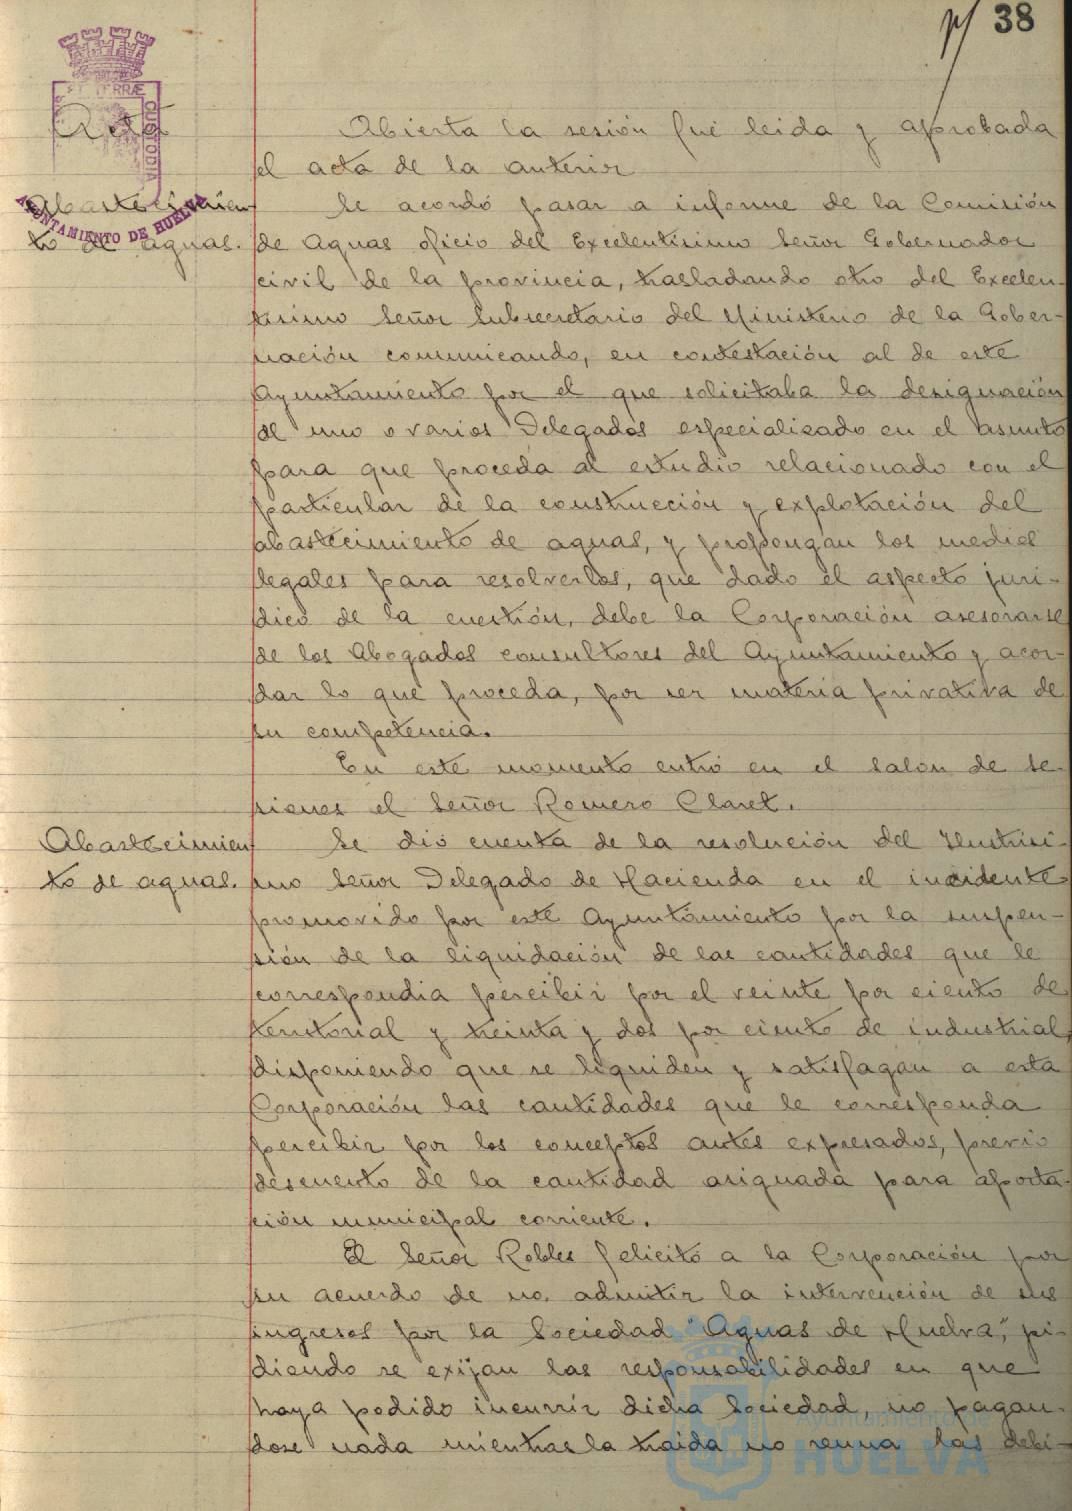 p/ 38
PORTUS MARIS ET TERRÆ CUSTODIA
AYUNTAMIENTO DE HUELVA
Acta
Abierta la sesión fué leida y aprobada
el acta de la anterior
Abastecimien
to de aguas.
Se acordó pasar a informe de la Comisión
de Aguas oficio del Excelentisimo Señor Gobernador
civil de la provincia, trasladando otro del Excelen-
tisimo Señor Subsecretario del Ministerio de la Gober-
nación comunicando, en contestación al de este
Ayuntamiento por el que solicitaba la designación
de uno o varios Delegados especializado en el asunto
para que proceda al estudio relacionado con el
particular de la construcción y explotación del
abastecimiento de aguas, y propongan los medios
legales para resolverlos, que dado el aspecto juri-
dico de la cuestión, debe la Corporación asesorarse
de los Abogados consultores del Ayuntamiento y acor-
dar lo que proceda, por ser materia privativa de
su competencia.
En este momento entró en el salón de se-
siones el Señor Romero Claret.
Abastecimien
to de aguas.
Se dió cuenta de la resolución del Ilustrisi-
mo Señor Delegado de Hacienda en el incidente
promovido por este Ayuntamiento por la suspen-
sión de la liquidación de las cantidades que le
correspondia percibir por el veinte por ciento de
territorial y treinta y dos por ciento de industrial,
disponiendo que se liquiden y satisfagan a esta
Corporación las cantidades que le corresponda
percibir por los conceptos antes expresados, previo
descuento de la cantidad asignada para aporta-
ción municipal corriente.
El Señor Robles felicitó a la Corporación por
su acuerdo de no admitir la intervención de sus
ingresos por la Sociedad "Aguas de Huelva", pi-
diendo se exijan las responsabilidades en que
haya podido incurrir dicha Sociedad, no pagan-
dose nada mientras la traida no reuna las debi-
Ayuntamiento de
HUELVA